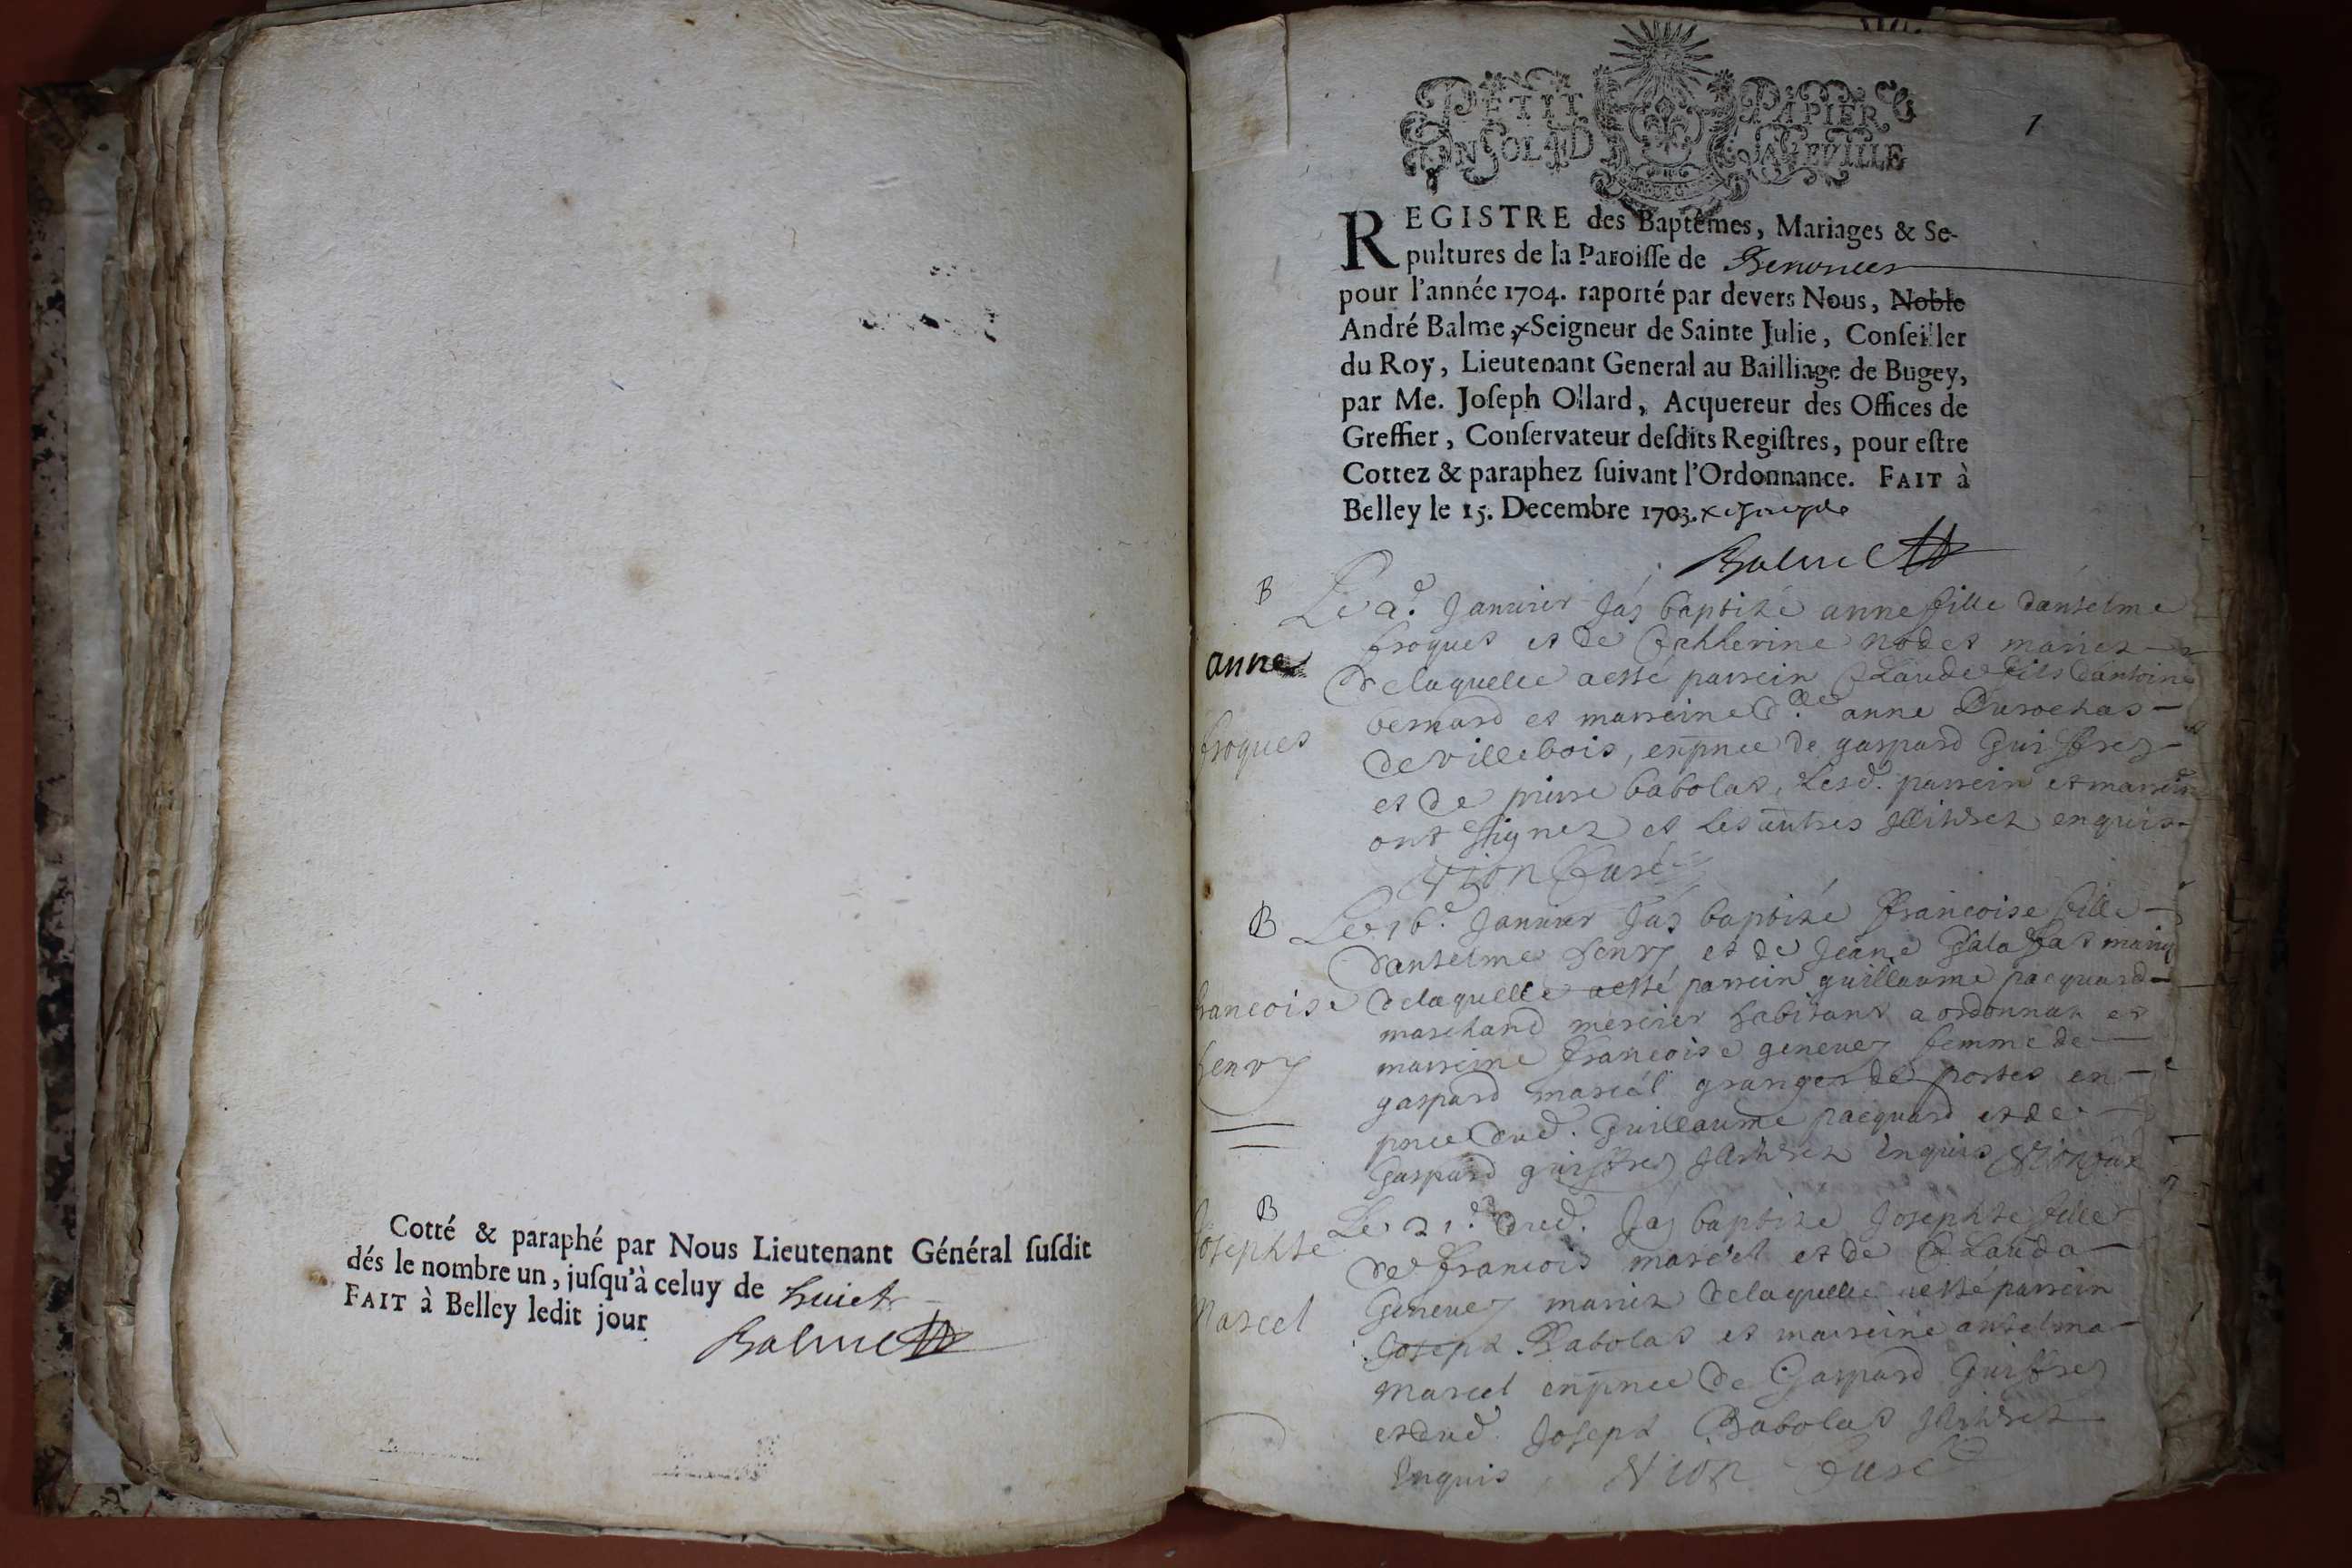 Cotté & paraphé par Nous Lieutenant Général suſdit
dés le nombre un, juſqu'à celuy de huict
FAIT à Belley ledit jour
Balme
PETIT PAPIER
UN SOL LA FEVILLE
1
REGISTRE des Baptêmes, Mariages & Se-
pultures de la Paroiſſe de Benonces
pour l'année 1704. raporté par devers Nous, Noble
André Balme, Seigneur de Sainte Julie, Conſeiller
du Roy, Lieutenant General au Bailliage de Bugey,
par Me. Joſeph Ollard, Acquereur des Offices de
Greffier, Conſervateur deſdits Regiſtres, pour eſtre
Cottez & paraphez ſuivant l'Ordonnance. FAIT à
Belley le 15. Decembre 1703.
Balme
B
Le Janvier Jay baptizé anne fille danselme
anne
froques et de Catherine mariez
de laquelle a esté parrein Claude fils dantoine
bernard et marreine dlle anne Durochas
froques
de villebois, en pnce de gaspard Guiffrey
et de babolat, Lesd. parrein et marreine
ont signez et les autres illitrez enquis
Nion Curé
B
Le 16e Janvier Jay baptizé Francoise fille
danselme henry et de Jeane mariez
francoise
de laquelle a esté parrein guillaume pacquard
marchand mercier habitant a ordonnaz et
marreine francoise genevey femme de
henry
gaspard marcel granger de portes en
pnce dud. Guillaume pacquard et de
Gaspard guiffrey illitrez enquis Nion Curé
B
Le 21e dud. Jay baptizé Josephte fille
Josephte
de francois marcel et de Clauda
Genevey mariez de laquelle a esté parrein
Marcel
Joseph Babolat et marreine anselma
Marcel en pnce de Gaspard Guiffrey
et dud. Joseph Babolat illitrez
enquis Nion Curé